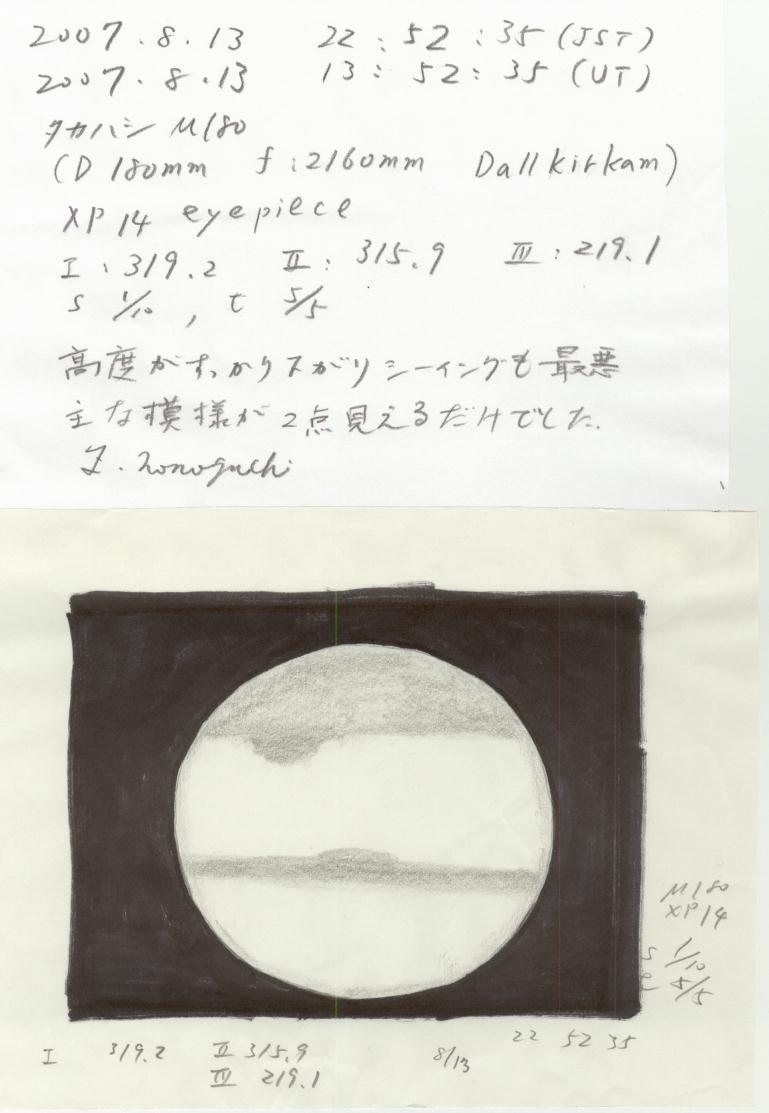 2007.8.13 22:52:35 (JST)
2007.8.13 13:52:35 (UT)
タカハシ μ180
(D 180mm f:2160mm Dallkirkam)
XP 14 eyepiece
I:319.2 II:315.9 III:219.1
S 1/10, t 5/5
高度がすっかり下がりシーイングも最悪
主な模様が2点見えるだけでした.
μ180
XP 14
S 1/10
t 5/5
22 52 35
I 319.2 II 315.9 8/13
III 219.1